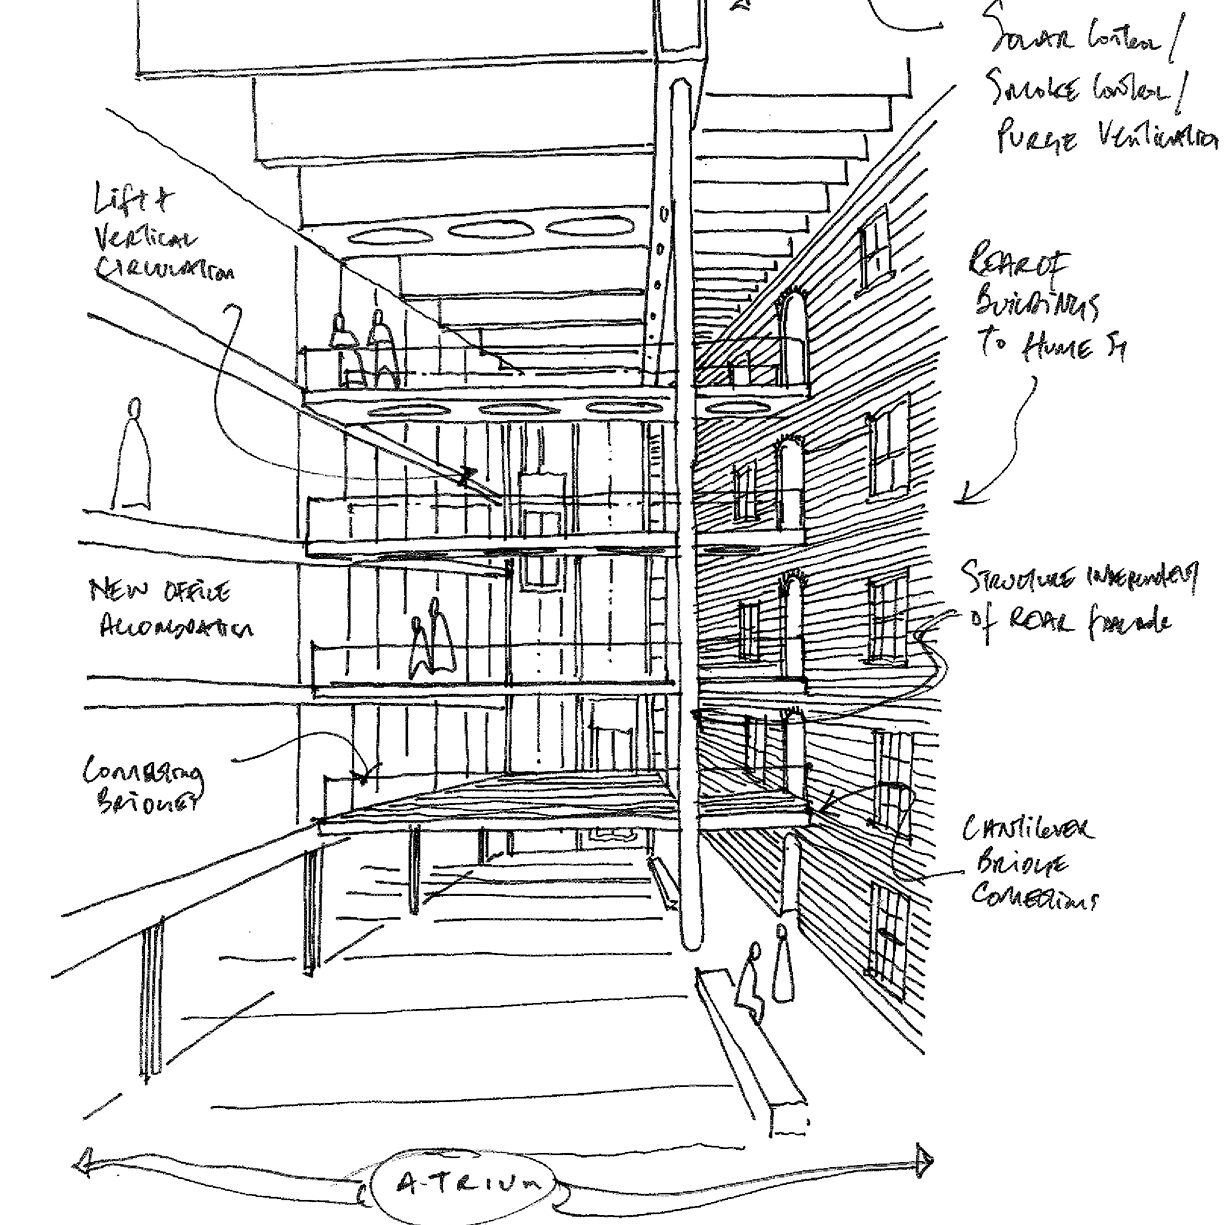 Solar Control /
Smoke Control /
Purge Ventilation
Lift +
Vertical
Circulation
Rear of
Buildings
to Hume St
New Office
Accomodation
Structure independent
of rear facade
Connecting
Bridges
Cantilever
Bridge
Connections
Atrium